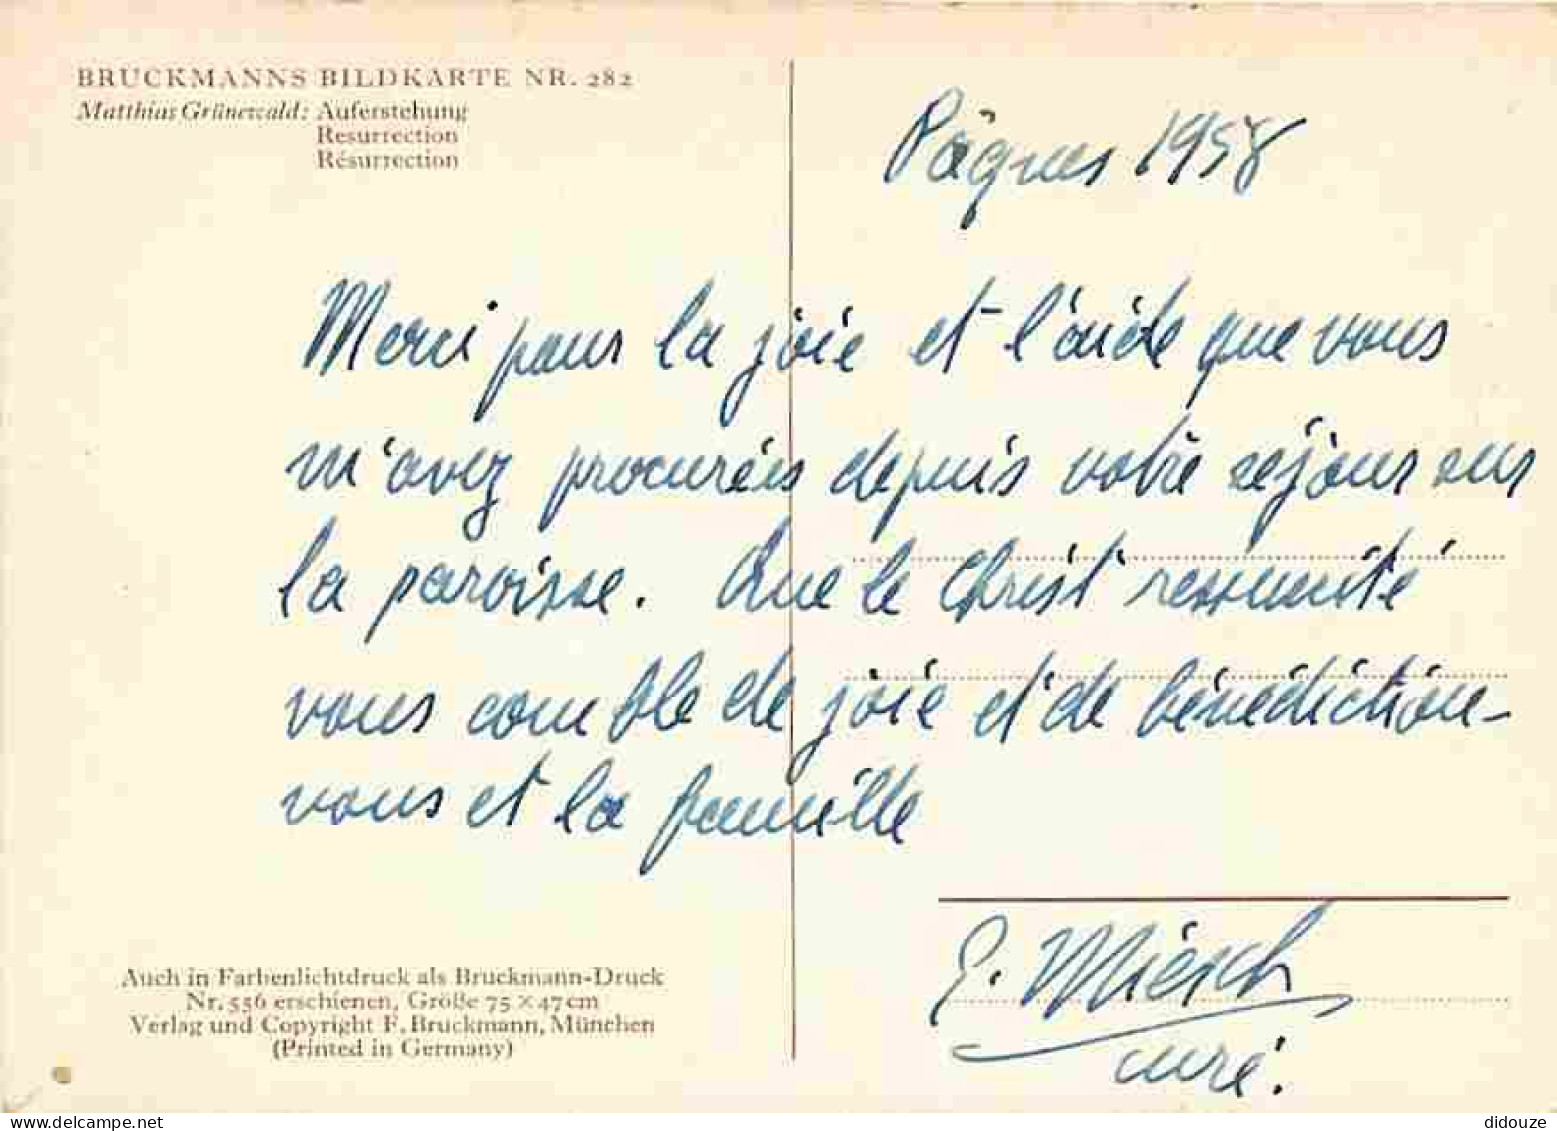 BRUCKMANNS BILDKARTE NR. 282
Matthias Grünewald: Auferstehung
Resurrection
Résurrection
Pâques 1958
Merci pour la joie et l'aide que vous
m'avez procurées depuis votre séjour sur
la paroisse. Que le Christ ressuscité
vous comble de joie et de bénédiction -
vous et la famille
Auch in Farbenlichtdruck als Bruckmann-Druck
Nr. 556 erschienen, Größe 75 × 47 cm
Verlag und Copyright F. Bruckmann, München
(Printed in Germany)
Miesch
curé.
didouze